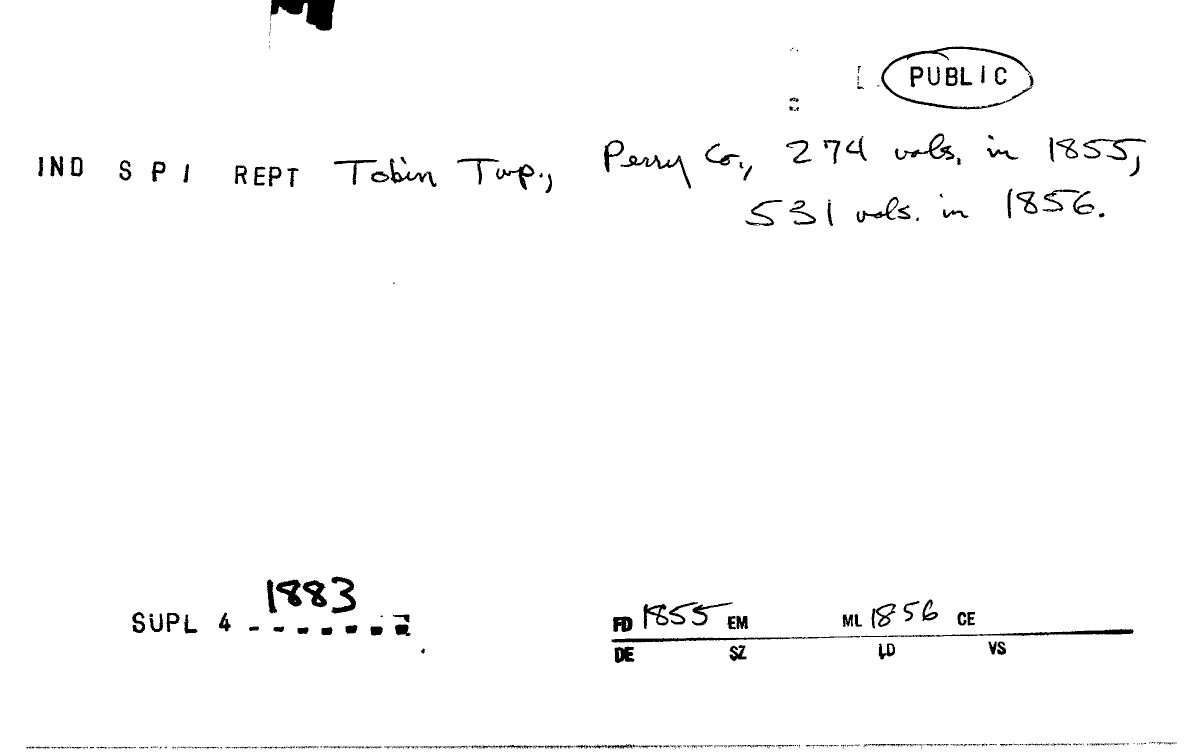 PUBLIC
IND S P I REPT Tobin Twp., Perry Co., 274 vols. in 1855,
531 vols. in 1856.
1883
SUPL 4 -------
FD 1855 EM ML 1856 CE
DE SZ LD VS